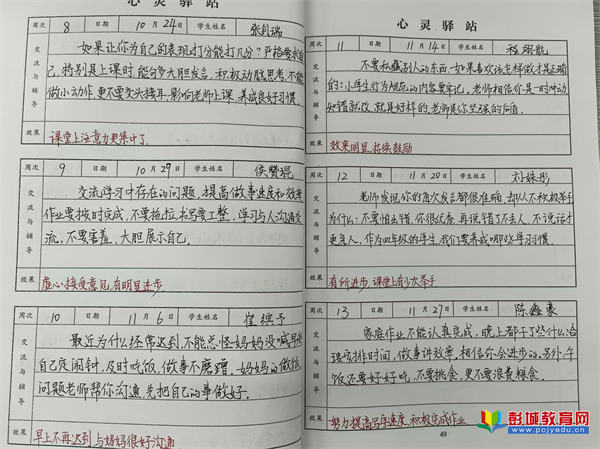 心灵驿站
周次 8 日期 10月24日 学生姓名
交流与辅导
如果让你为自己的表现打分能打几分？严格要求自
己，特别是上课时，能够多大胆发言，积极动脑思考，不能
做小动作，更不要交头接耳，影响老师上课，养成良好习惯。
效果 课堂上注意力更集中了。
周次 9 日期 10月29日 学生姓名
交流与辅导
交流学习中存在的问题，提高做事速度和效率
作业要按时完成，不要拖拉，书写要工整，学习与人沟通交
流，不要害羞，大胆展示自己。
效果 虚心接受意见，有明显进步
周次 10 日期 11月6日 学生姓名
交流与辅导
最近为什么经常迟到，不能总怪妈妈没喊早
自己定闹钟，及时吃饭，做事不磨蹭，妈妈的做饭
问题老师帮你沟通，先把自己的事做好。
效果 早上不再迟到，与妈妈很好沟通
心灵驿站
周次 11 日期 11月14日 学生姓名 程翊航
交流与辅导
不要私藏别人的东西，如果喜欢该怎样做才是正确
的？小学生行为规范的内容要牢记，老师相信你是一时冲动
知错就改，就是好样的，老师是你坚强的后盾。
效果 效果明显，持续鼓励
周次 12 日期 11月20日 学生姓名 刘姝彤
交流与辅导
老师发现你的每次发言都很准确，却从不积极举手
为什么？不要怕出错，你很优秀，再说错了不丢人，不说话才
更丢人，作为四年级的学生，我们要养成哪些学习习惯。
效果 有所进步，课堂上有少次举手
周次 13 日期 11月27日 学生姓名 陈鑫豪
交流与辅导
家庭作业不能认真完成，晚上都干了些什么？合
理安排时间，做事讲效率，相信你会进步的，另外，午
饭还要好好吃，不要挑食，更不要浪费粮食。
效果 努力提高写字速度，积极完成作业
49
彭城教育网
www.pcjyedu.cn